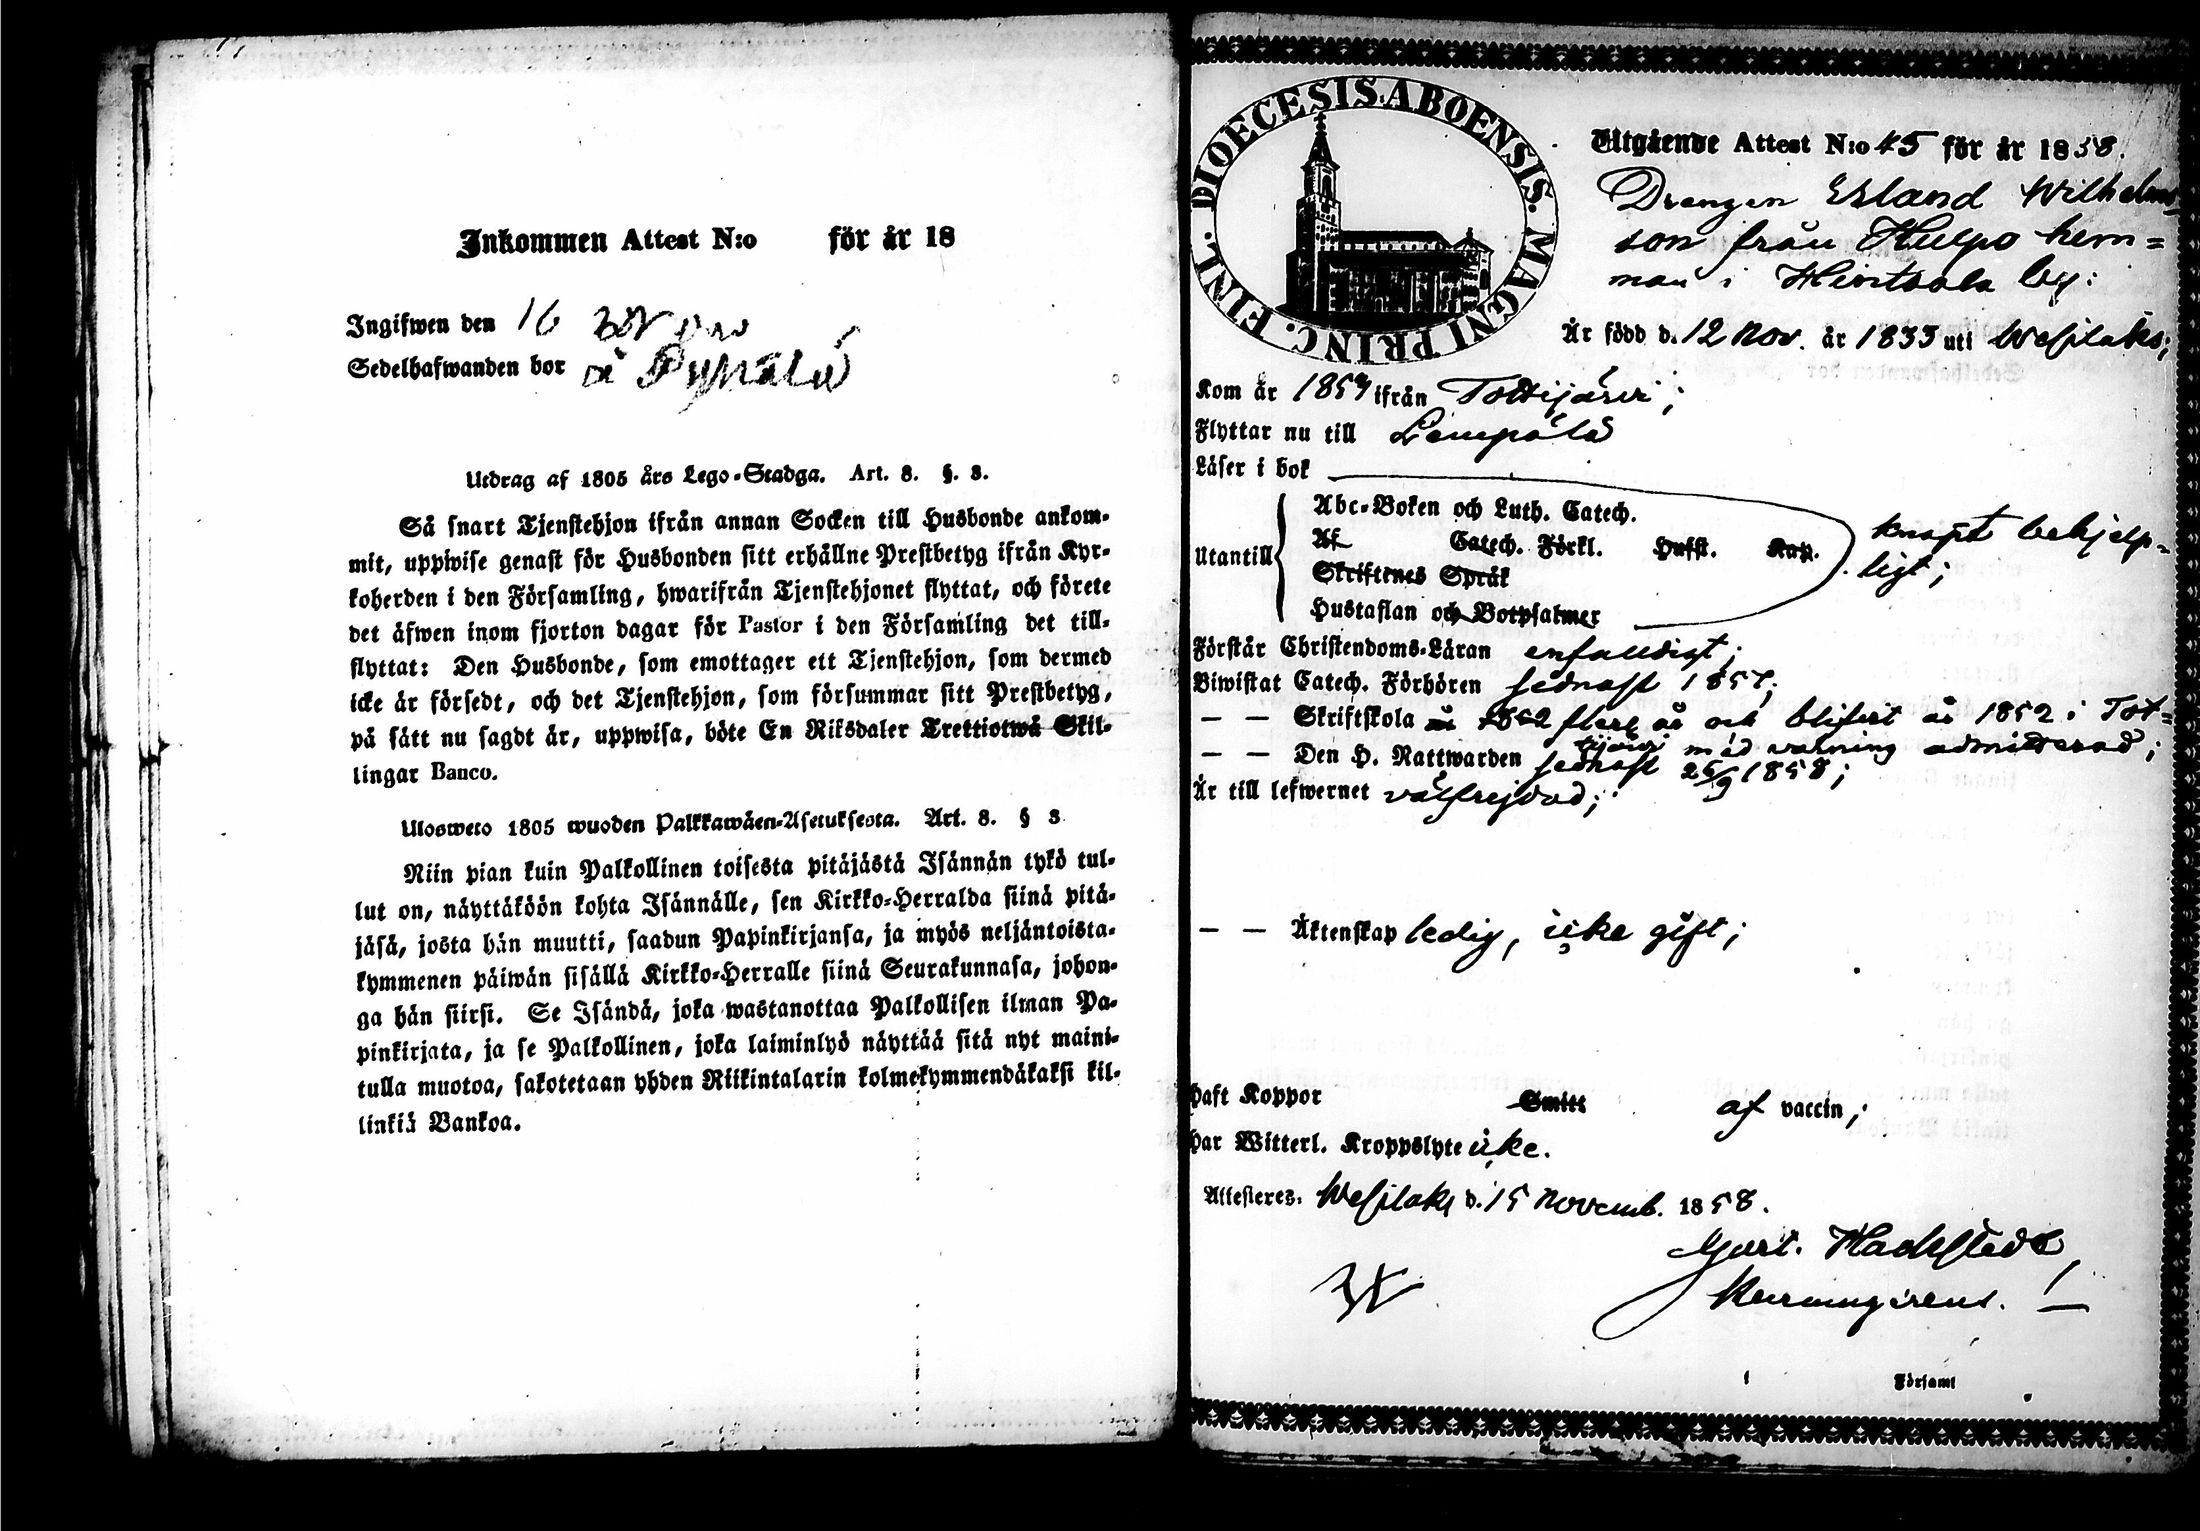 Inkommen Attest N:o för år 18
Ingifwen den 16
Sedelhafwanden bor
Utdrag af 1805 års Lego-Stadga. Art. 8. §. 3.
Så snart Tjenstehjon ifrån annan Socken till Husbonde ankom-
mit, uppwise genast för Husbonden sitt erhållne Prestbetyg ifrån Kyr-
koherden i den Församling, hwarifrån Tjenstehjonet flyttat, och förete
det äfwen inom fjorton dagar för Pastor i den Församling det till-
flyttat: Den Husbonde, som emottager ett Tjenstehjon, som dermed
icke är försedt, och det Tjenstehjon, som försummar sitt Prestbetyg,
på sätt nu sagdt är, uppwisa, böte En Riksdaler Trettiotwå Skil-
lingar Banco.
Uloswето 1805 wuoden Palkkawäen-Asetuksesta. Art. 8. § 3
Niin pian kuin Palkollinen toisesta pitäjästä Isännän tykö tul-
lut on, näyttäköön kohta Isännälle, sen Kirkko-Herralda siinä pitä-
jäsä, josta hän muutti, saadun Papinkirjansa, ja myös neljäntoista-
kymmenen päiwän sisällä Kirkko-Herralle siinä Seurakunnasa, johon-
ga hän siirsi. Se Isändä, joka wastanottaa Palkollisen ilman Pa-
pinkirjata, ja se Palkollinen, joka laiminlyö näyttää sitä nyt maini-
tulla muotoa, sakotetaan yhden Riikintalarin kolmekymmendäkaksi kil-
linkiä Bankoa.
DIOECESIS ABOENSIS. MAGNI PRINC. FINL.
Utgående Attest N:o 45 för år 1858.
Drengen Erland Wilhelms-
son från Hulpo hem=
man i Hinstsala by:
Är född d. 12 Nov. år 1833 uti Wesilaks;
Kom år 1857 ifrån Tottijärvi;
Flyttar nu till Lempälä
Läser i bok
Utantill
Abc-Boken och Luth. Catech.
Af Catech. Förkl. Hufst. Kap.
Skriftenes Språk
Hustaflan och Botpsalmer
knapt behjelp=
ligt;
Förstår Christendoms-Läran enfaldigt;
Biwistat Catech. Förhören sednast 1857;
— — Skriftskola flere år och blifvit år 1852 i Tot=
tijärvi med varning admitterad;
— — Den H. Nattwarden sednast 25/9 1858;
Är till lefwernet välfrejdad;
— — Äktenskap ledig, icke gift;
Haft Koppor Smitt af vaccin;
Har Witterl. Kroppslyte icke.
Attesteres. Wesilaks d. 15 Novemb. 1858.
Gust. Hachstedt,
Församl